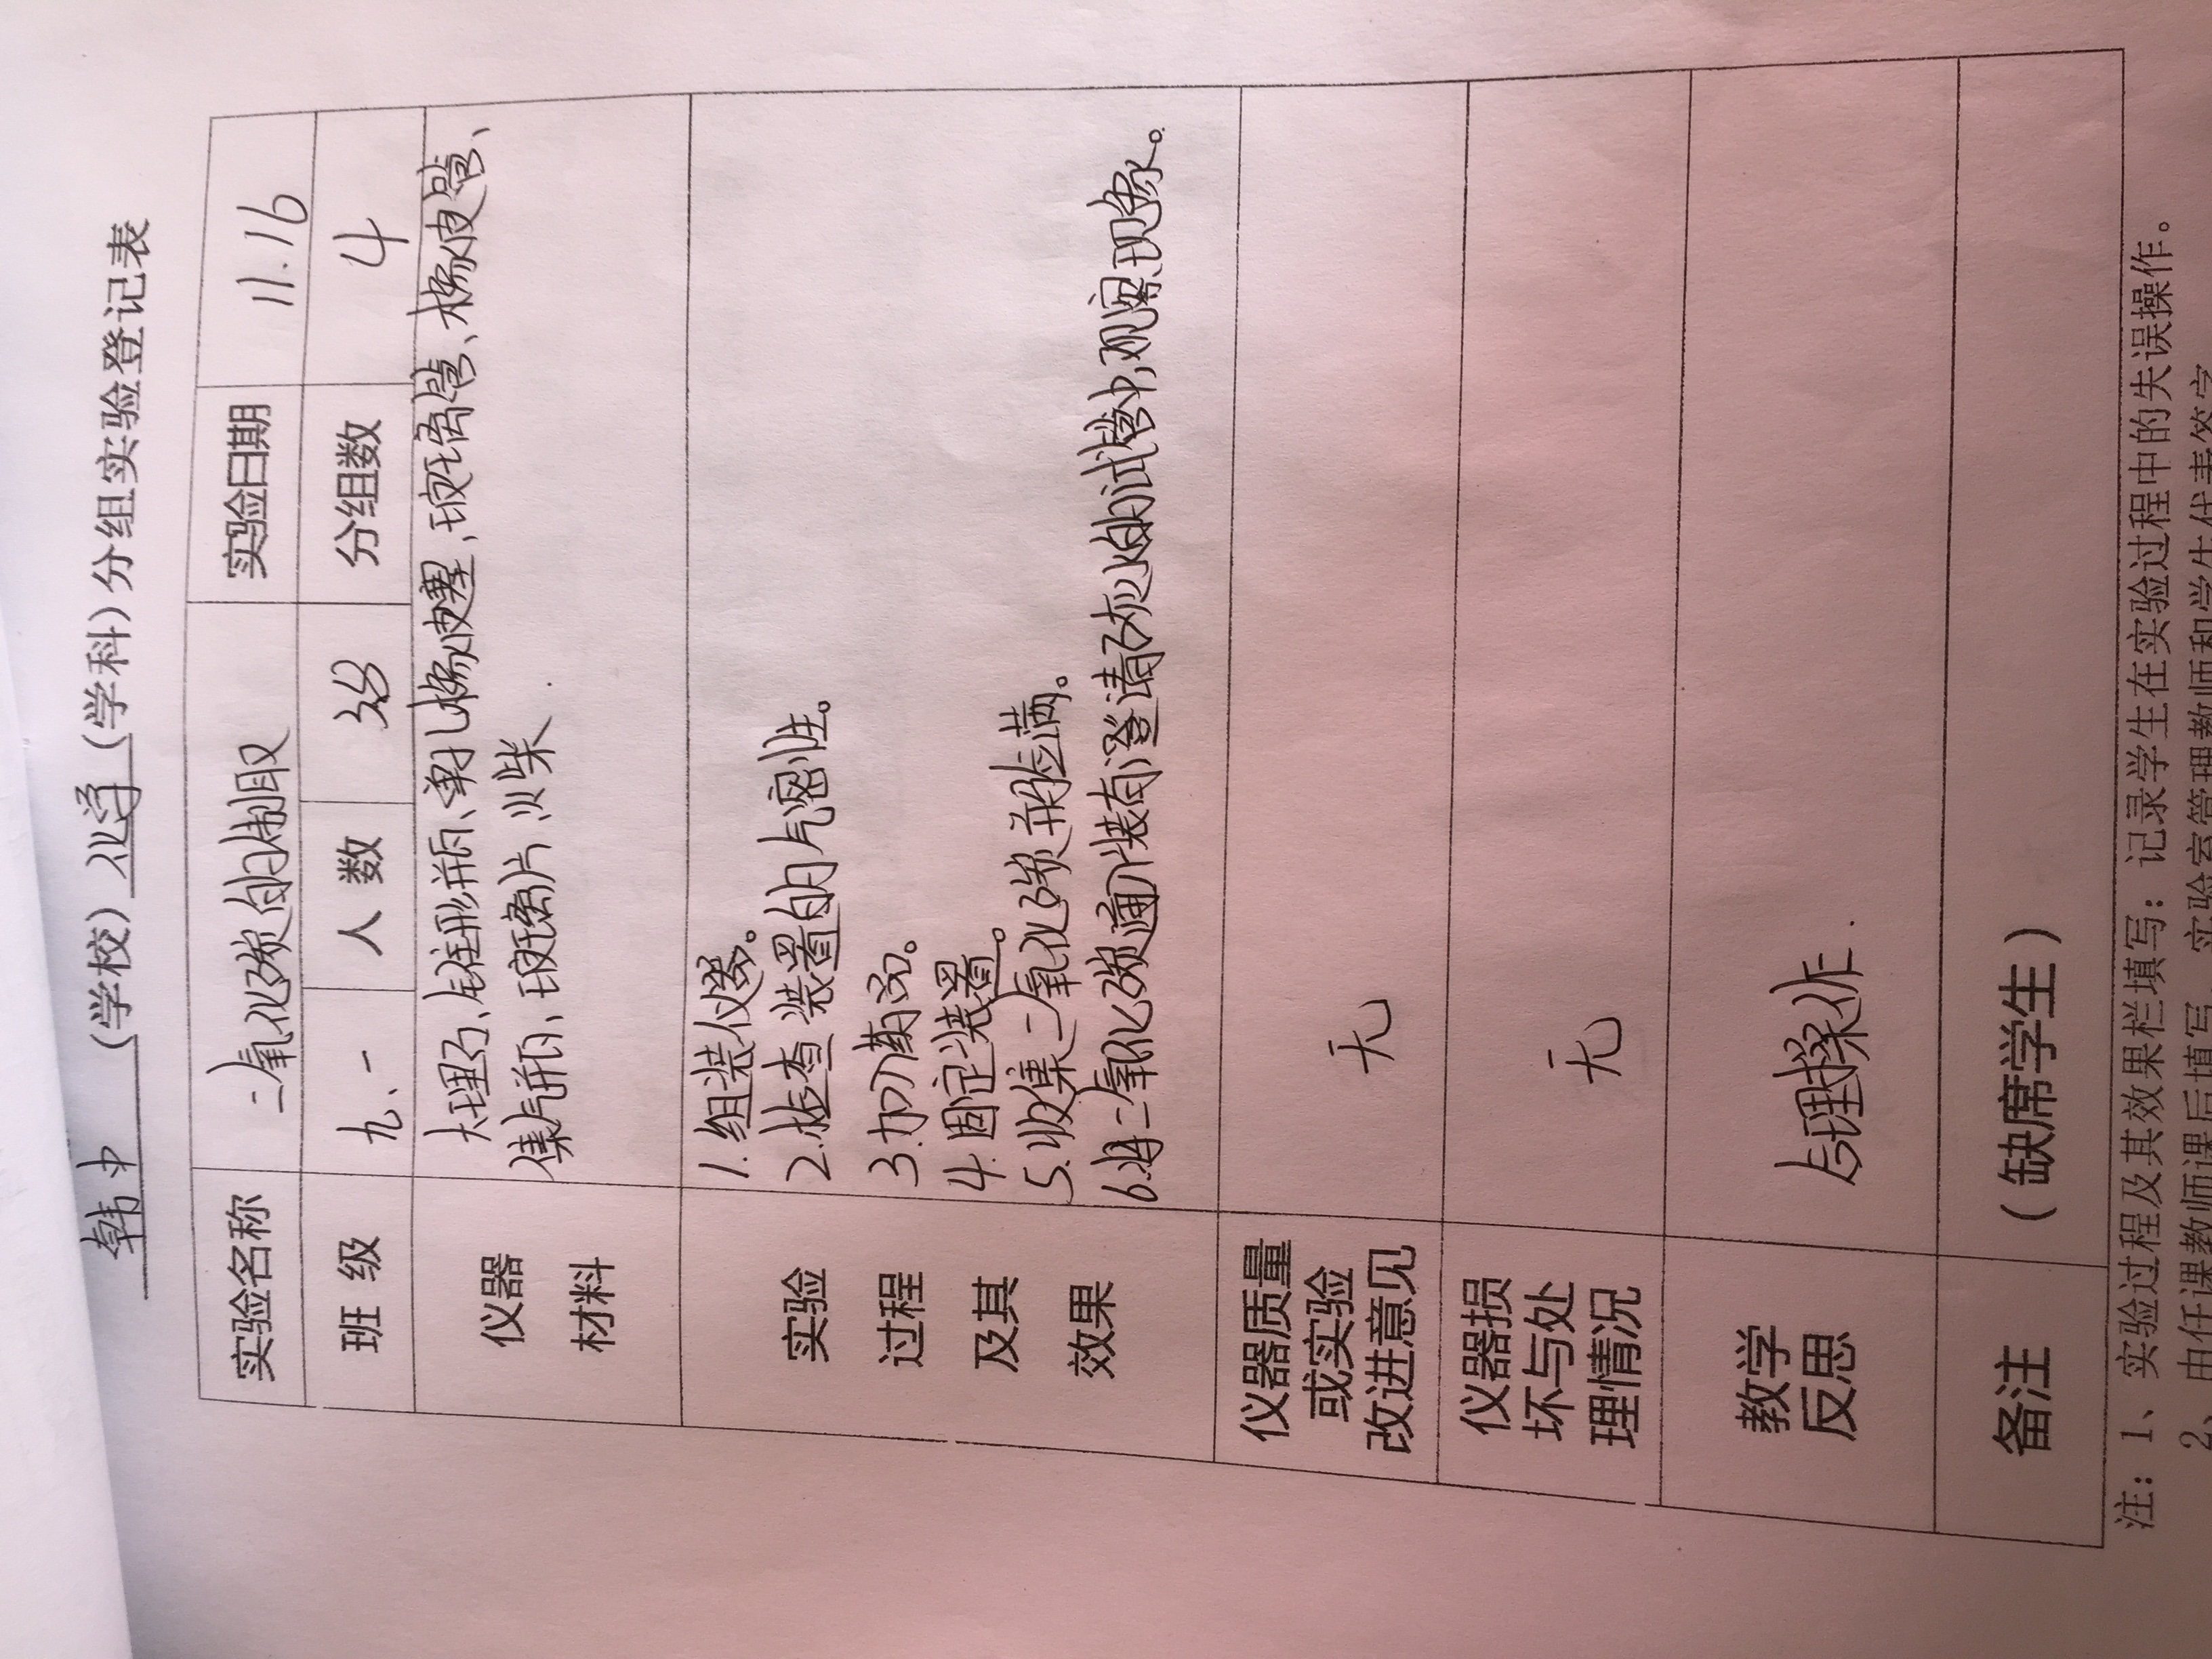 韩中 (学校) 化学 (学科) 分组实验登记表
实验名称 二氧化碳的制取 实验日期 11.16
班级 九、一 人数 分组数 4
仪器材料 大理石、锥形瓶、单孔橡皮塞、玻璃管、橡皮管、
集气瓶、玻璃片 火柴.
实验过程及其效果 1.组装仪器。
2.检查装置的气密性。
3.加药品。
4.固定装置。
5.收集二氧化碳并验满。
6.将二氧化碳通入装有澄清石灰水的试管中,观察现象。
仪器质量或实验改进意见 无
仪器损坏与处理情况 无
教学反思 合理操作.
备注 (缺席学生)
注: 1、实验过程及其效果栏填写: 记录学生在实验过程中的失误操作。
2、由任课教师课后填写, 实验室管理教师和学生代表签字